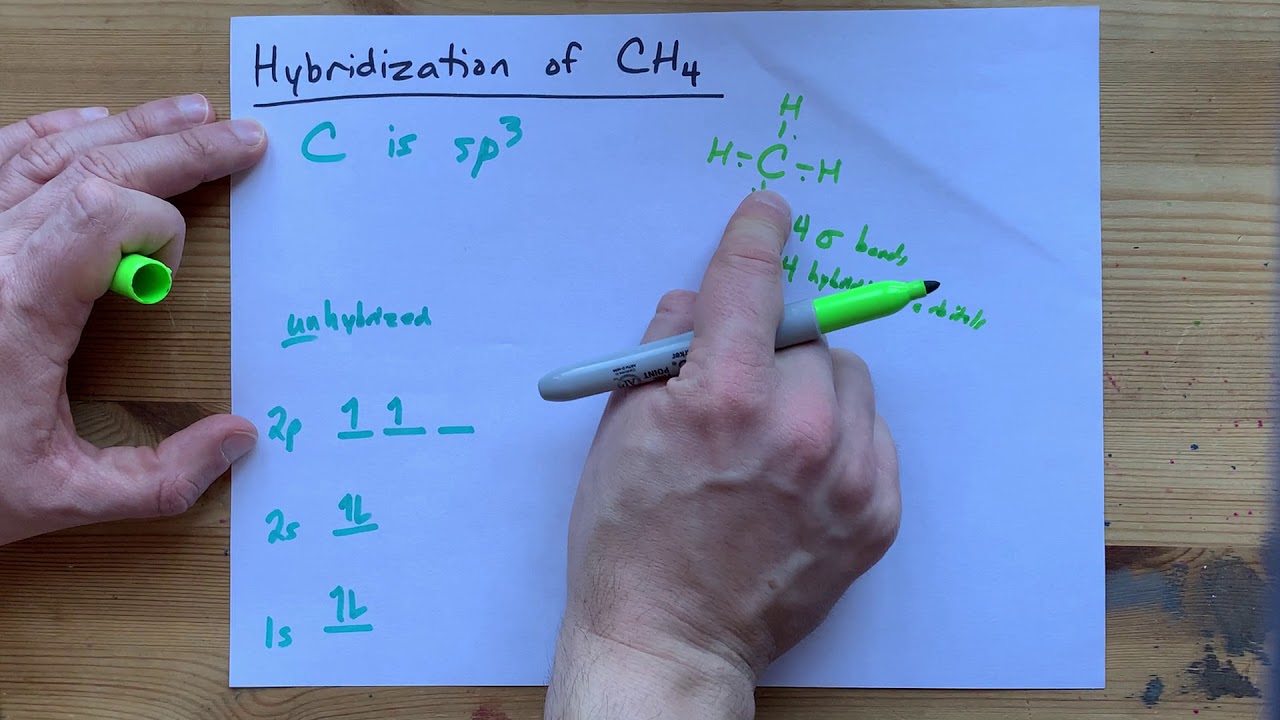 Hybridization of CH4
C is sp3
H
H - C - H
4 σ bonds
4
orbitals
unhybrized
2p 1 1 _
2s 1L
1s 1L
POINT